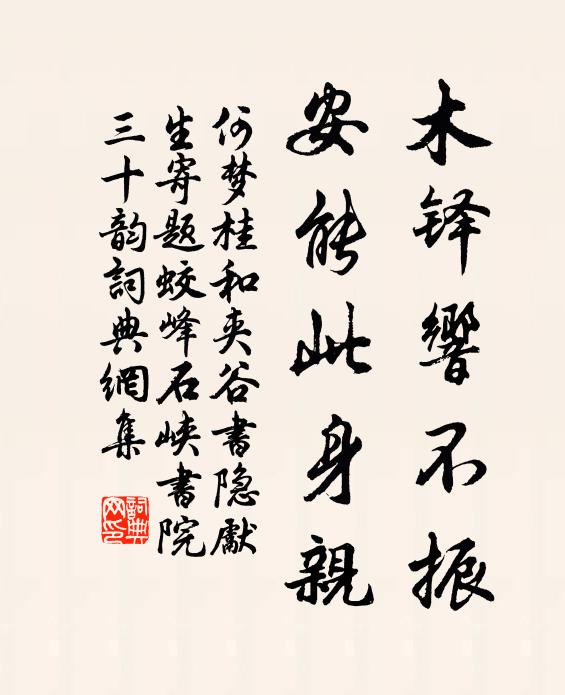 木铎響不振
安能此身親
何梦桂和夹谷书隐献
生寄题蛟峰石峡書院
三十韵詞典網集
詞典网印